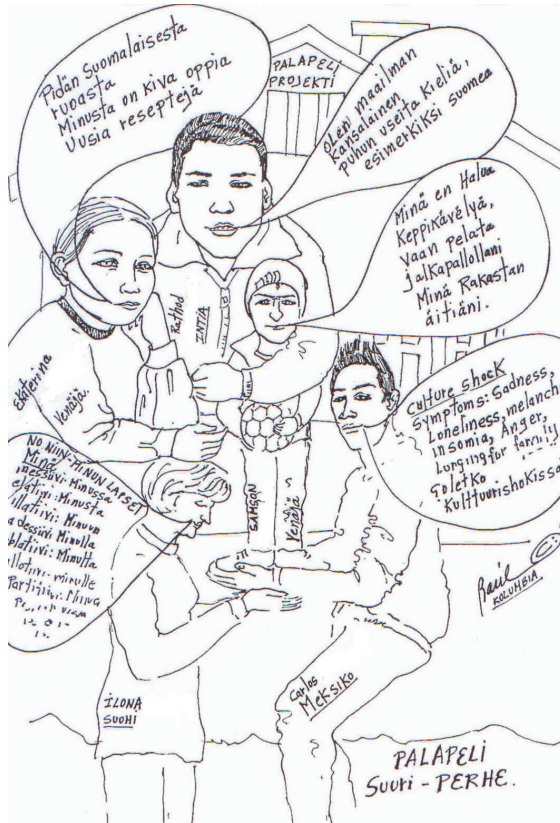 Pidän Suomalaisesta
ruoasta
Minusta on kiva oppia
Uusia reseptejä
PALAPELI
PROJEKTI
Olen maailman
Kansalainen
puhun useita Kieliä,
esimerkiksi suomea
Minä en Halua
Keppikävelyä,
vaan pelata
jalkapallollani
Minä Rakastan
äitiäni.
Culture shock
Symptoms: Sadness,
Loneliness, melanch
insomia, Anger,
Lunging for family
Goletko
Kulttuurishokissa
Ekaterina
Venäjä.
Rathod
INTIA
SAMSON
Kenäjä
NO NIIN, MINUN LAPSET
Minä
inessiivi: Minussa
elatiivi: Minusta
illatiivi: Minuun
adessiivi Minulla
ablatiivi: Minulta
allatiivi: minulle
Partitiivi: Minua
ILONA
SUOHI
Carlos
MeKsiKo
Raúl
KOLUMBIA
PALAPELI
Suuri - PERHE.